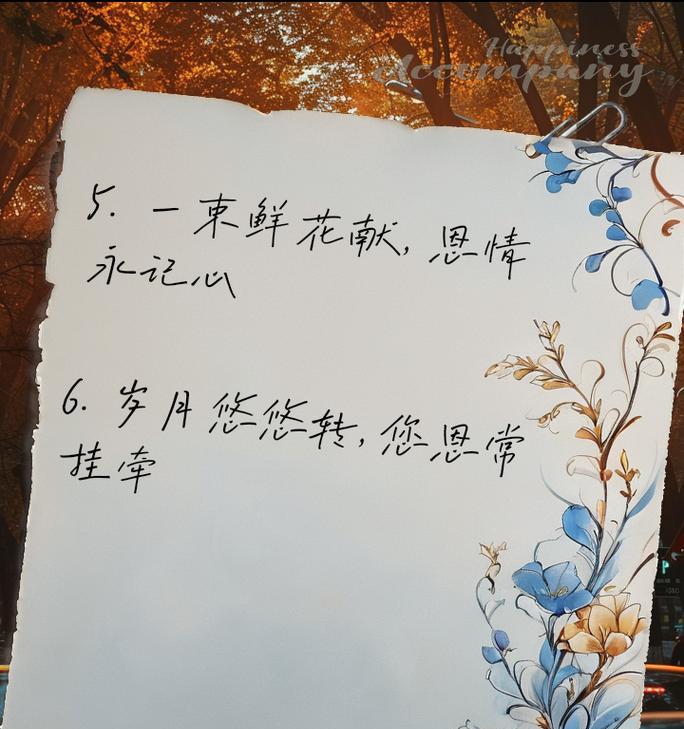 Happiness
accompany
5. 一束鲜花献,恩情
永记心
6. 岁月悠悠转,您恩常
挂牵
P